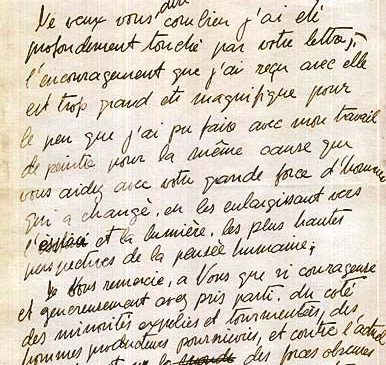 Je veux vous dire combien j'ai été
profondement touché par votre lettre,
l'encouragement que j'ai reçu avec elle
est trop grand et magnifique pour
le peu que j'ai pu faire avec mon travail
de peintre pour la même cause que
vous aidez avec votre grande force d'homme
qui a changé, en les enlargissant vers
l'espace et la lumière, les plus hautes
perspectives de la pensée humaine,
Je Vous remercie, a Vous que si courageuse
et genereusement avez pris parti, du coté
des minorités expoliés et tourmentées, des
hommes producteurs poursuivies, et contre l'actuel
des forces obscures